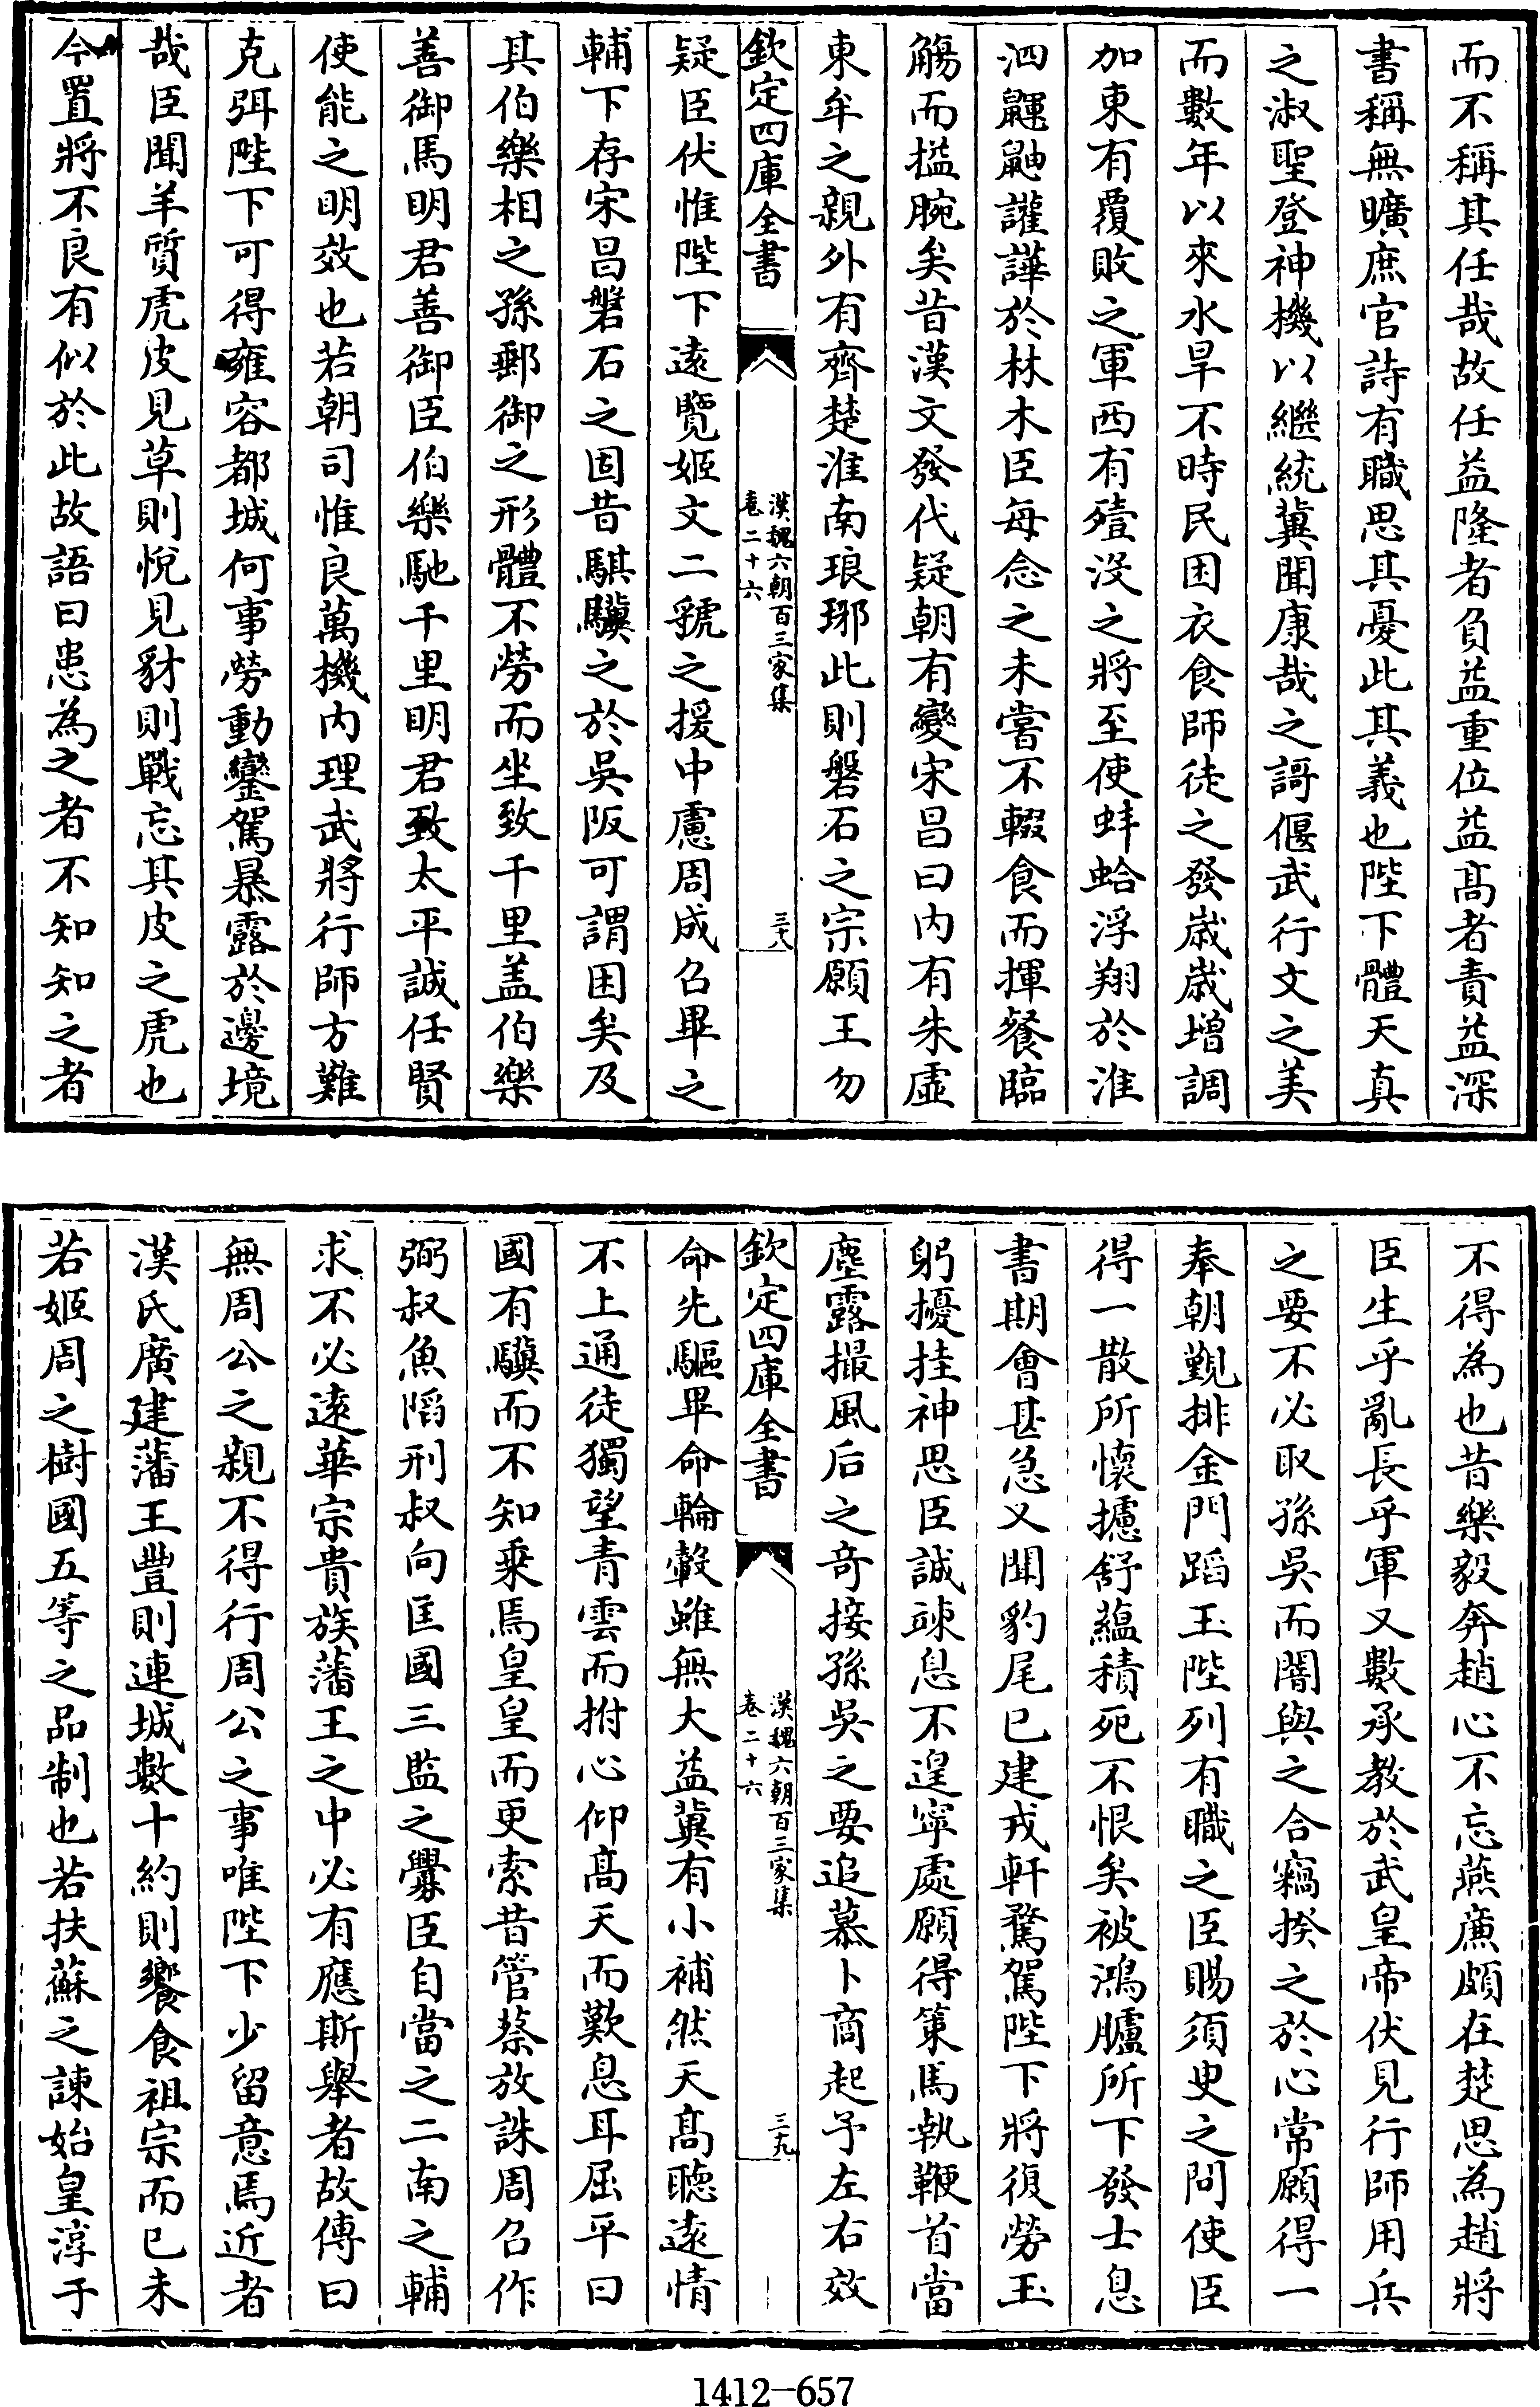 而不稱其任哉故任益隆者負益重位益髙者責益深
書稱無曠庶官詩有職思其憂此其義也陛下體天真
之淑聖登神機以繼統冀聞康哉之謌偃武行文之美
而數年以來水旱不時民困衣食師徒之發嵗嵗增調
加東有覆敗之軍西有殪沒之將至使蚌蛤浮翔於淮
泗鼲鼬讙譁於林木臣每念之未嘗不輟食而揮餐臨
觴而搤腕矣昔漢文發代疑朝有變宋昌曰内有朱虛
東牟之親外有齊楚淮南琅琊此則磐石之宗願王勿
欽定四庫全書
漢魏六朝百三家集
卷二十六
三十八
疑臣伏惟陛下逺覽姬文二虢之援中慮周成召畢之
輔下存宋昌磐石之固昔騏驥之於吳阪可謂困矣及
其伯樂相之孫郵御之形體不勞而坐致千里盖伯樂
善御馬明君善御臣伯樂馳千里明君致太平誠任賢
使能之明效也若朝司惟良萬機内理武將行師方難
克弭陛下可得雍容都城何事勞動鑾駕暴露於邊境
哉臣聞羊質虎皮見草則悅見豺則戰忘其皮之虎也
今置將不良有似於此故語曰患為之者不知知之者
不得為也昔樂毅奔趙心不忘燕亷頗在楚思為趙將
臣生乎亂長乎軍又數承教於武皇帝伏見行師用兵
之要不必取孫吳而闇與之合竊揆之於心常願得一
奉朝覲排金門蹈玉陛列有職之臣賜須臾之問使臣
得一散所懷攄舒蘊積死不恨矣被鴻臚所下發士息
書期會甚急又聞豹尾已建戎軒騖駕陛下將復勞玉
躬擾挂神思臣誠竦息不遑寧處願得策馬執鞭首當
塵露撮風后之竒接孫吳之要追慕卜商起予左右效
欽定四庫全書
漢魏六朝百三家集
卷二十六
三十九
命先驅畢命輪轂雖無大益冀有小補然天髙聽逺情
不上通徒獨望青雲而拊心仰髙天而歎息耳屈平曰
國有驥而不知乗焉皇皇而更索昔管蔡放誅周召作
弼叔魚䧟刑叔向匡國三監之釁臣自當之二南之輔
求不必逺華宗貴族藩王之中必有應斯舉者故傳曰
無周公之親不得行周公之事唯陛下少留意焉近者
漢氏廣建藩王豐則連城數十約則饗食祖宗而已未
若姬周之樹國五等之品制也若扶蘇之諫始皇淳于
1412-657